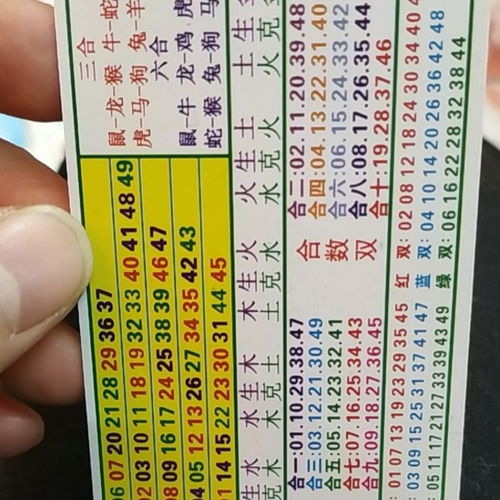 三合
鼠-龙-猴 牛-蛇
虎-马-狗 兔-羊
六合
鼠-牛 龙-鸡 虎
蛇-猴 兔-狗 马
07 20 21 28 29 36 37
03 10 11 18 19 32 33 40 41 48 49
09 16 17 24 25 38 39 46 47
05 12 13 26 27 34 35 42 43
14 15 22 23 30 31 44 45
生水 水生木 木生火 火生土 土生
克木 木克土 土克水 水克火 火克
合一:01.10.29.38.47
合三:03.12.21.30.49
合五:05.14.23.32.41
合七:07.16.25.34.43
合九:09.18.27.36.45
合数双
合二:02.11.20.39.48
合四:04.13.22.31.40
合六:06.15.24.33.42
合八:08.17.26.35.44
合十:19.28.37.46
01 07 13 19 23 29 35 45 红 双: 02 08 12 18 24 30 34 40
03 09 15 25 31 37 41 47 蓝 双: 04 10 14 20 26 36 42 48
05 11 17 21 27 33 39 43 49 绿 双: 06 16 22 28 32 38 44